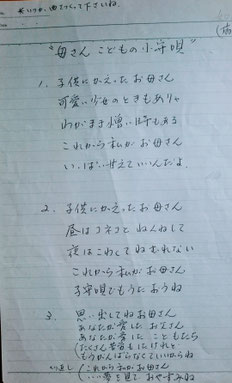 *いつか、曲をつくって下さいね
"母さん こどもの小守唄"
1. 子供にかえったお母さん
可愛い少女のときもありゃ
わがまま憎い時もある
これから私がお母さん
いっぱい甘えていいんだよ
2. 子供にかえったお母さん
昼はコネコとねんねして
夜はこわくてねむれない
これから私がお母さん
子守唄でもうたおうね
3. 思い出してねお母さん
あなたが愛したお父さん
あなたが愛したこどもたち
たくさん苦労もしたけれど
もうがんばらなくていいからね
これから私がお母さん
いい夢を見ておやすみね